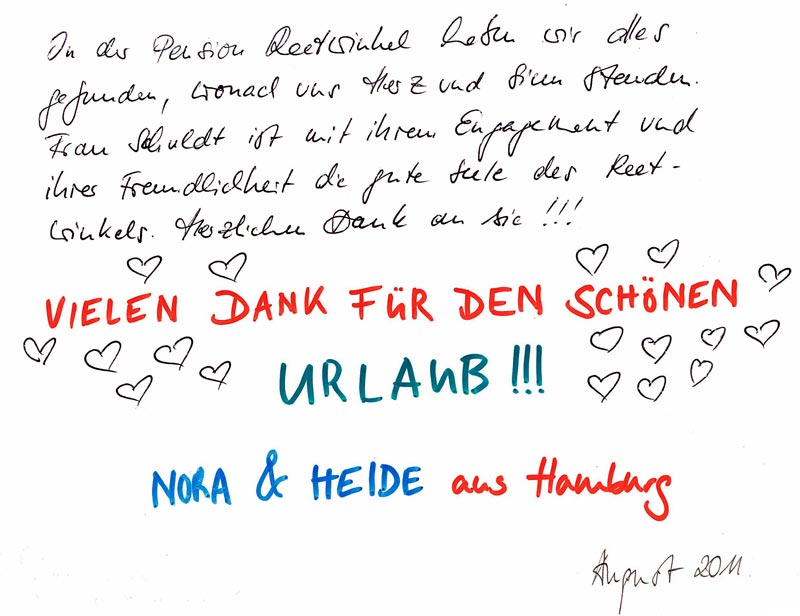 In der Pension Reetwinkel haben wir alles
gefunden, wonach uns Herz und Sinn standen.
Frau Schuldt ist mit ihrem Engagement und
ihrer Freundlichkeit die gute Seele des Reet-
winkels. Herzlichen Dank an Sie!!!
VIELEN DANK FÜR DEN SCHÖNEN
URLAUB!!!
NORA & HEIDE aus Hamburg
August 2011